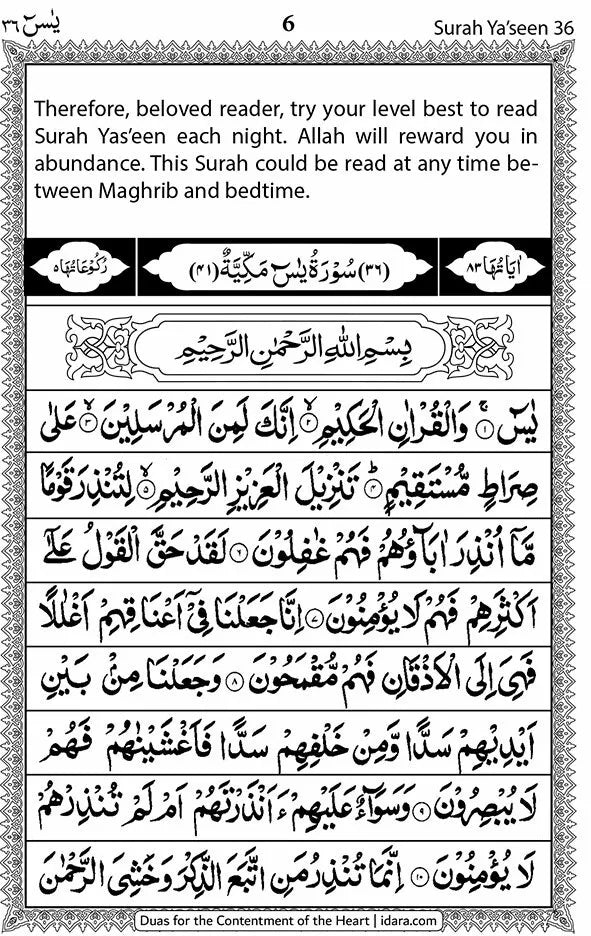 يٰسٓ ٣٦
6
Surah Ya’seen 36
Therefore, beloved reader, try your level best to read
Surah Yas’een each night. Allah will reward you in
abundance. This Surah could be read at any time be-
tween Maghrib and bedtime.
اٰيَاتُهَا ٨٣
(٣٦) سُوْرَةُ يٰسٓ مَكِّيَّةٌ (٤١)
رُكُوْعَاتُهَا ٥
بِسْمِ اللّٰهِ الرَّحْمٰنِ الرَّحِيْمِ
يٰسٓ ۚ﴿١﴾ وَالْقُرْاٰنِ الْحَكِيْمِ ۙ﴿٢﴾ اِنَّكَ لَمِنَ الْمُرْسَلِيْنَ ۙ﴿٣﴾ عَلٰى
صِرَاطٍ مُّسْتَقِيْمٍ ؕ﴿٤﴾ تَنْزِيْلَ الْعَزِيْزِ الرَّحِيْمِ ۙ﴿٥﴾ لِتُنْذِرَ قَوْمًا
مَّاۤ اُنْذِرَ اٰبَآؤُهُمْ فَهُمْ غٰفِلُوْنَ ﴿٦﴾ لَقَدْ حَقَّ الْقَوْلُ عَلٰٓى
اَكْثَرِهِمْ فَهُمْ لَا يُؤْمِنُوْنَ ﴿٧﴾ اِنَّا جَعَلْنَا فِيْۤ اَعْنَاقِهِمْ اَغْلٰلًا
فَهِيَ اِلَى الْاَذْقَانِ فَهُمْ مُّقْمَحُوْنَ ﴿٨﴾ وَجَعَلْنَا مِنْۢ بَيْنِ
اَيْدِيْهِمْ سَدًّا وَّمِنْ خَلْفِهِمْ سَدًّا فَاَغْشَيْنٰهُمْ فَهُمْ
لَا يُبْصِرُوْنَ ﴿٩﴾ وَسَوَآءٌ عَلَيْهِمْ ءَاَنْذَرْتَهُمْ اَمْ لَمْ تُنْذِرْهُمْ
لَا يُؤْمِنُوْنَ ﴿١٠﴾ اِنَّمَا تُنْذِرُ مَنِ اتَّبَعَ الذِّكْرَ وَخَشِيَ الرَّحْمٰنَ
Duas for the Contentment of the Heart | idara.com